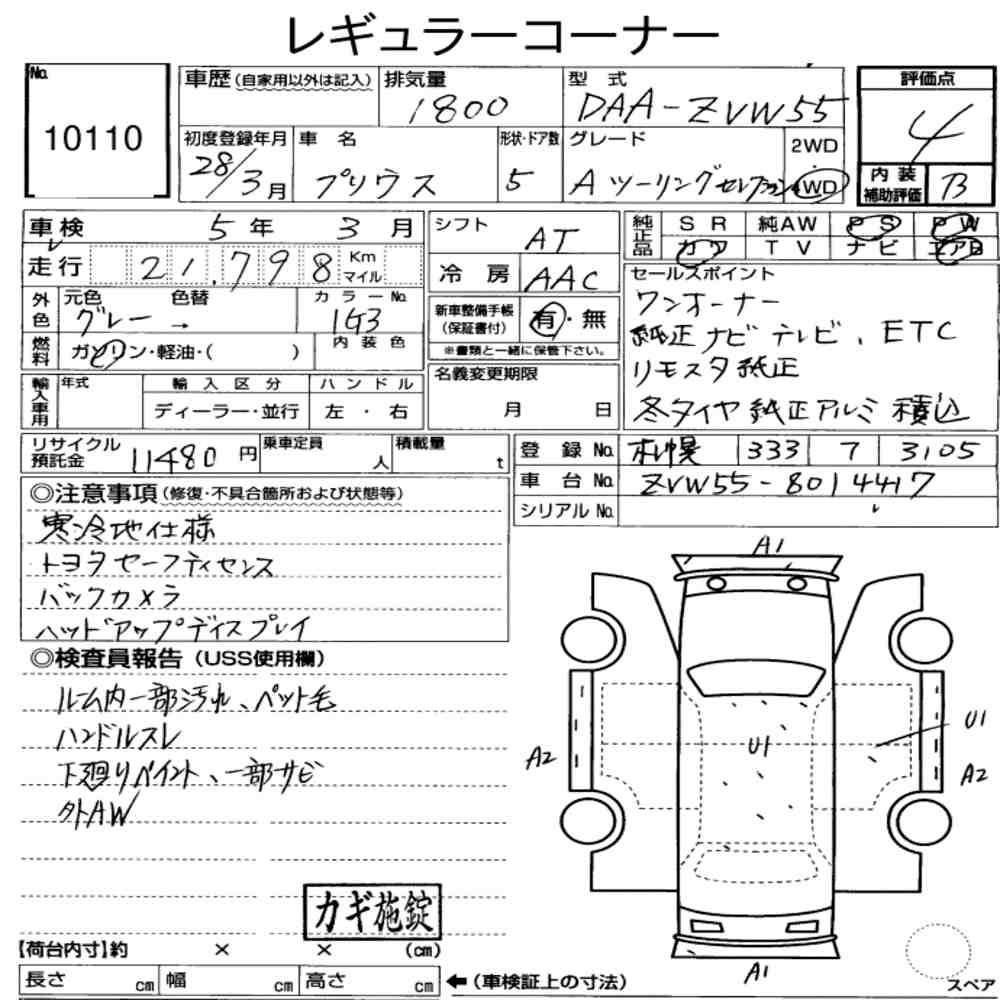 レギュラーコーナー
No.
10110
車歴 (自家用以外は記入)
排気量
1800
型式
DAA-ZVW55
評価点
4
内装補助評価 B
初度登録年月
28/3月
車名
プリウス
形状・ドア数
5
グレード
Aツーリングセレクション
2WD
・
4WD
車検 5年 3月
走行 21,798 Km マイル
シフト
AT
冷房 AAC
純正品 SR 純AW PS PW
カワ TV ナビ エアB
セールスポイント
ワンオーナー
純正ナビテレビ、ETC
リモスタ純正
冬タイヤ純正アルミ積込
外色 元色 色替
グレー →
カラーNo.
1G3
燃料 ガソリン・軽油・( )
内装色
新車整備手帳(保証書付) 有・無
※書類と一緒に保管下さい。
名義変更期限
月 日
輸入車用 年式 輸入区分 ハンドル
ディーラー・並行 左・右
リサイクル預託金 11480円
乗車定員 人
積載量 t
登録No. 札幌 333 7 3105
車台No. ZVW55-8014417
シリアルNo.
◎注意事項 (修復・不具合箇所および状態等)
寒冷地仕様
トヨタセーフティセンス
バックカメラ
ハッドアップディスプレイ
◎検査員報告 (USS使用欄)
ルーム内一部汚れ、ペット毛
ハンドルスレ
下廻りペイント、一部サビ
外AW
A1
U1
U1
A2
A2
A1
カギ施錠
【荷台内寸】約 × × (cm)
長さ cm 幅 cm 高さ cm
←(車検証上の寸法)
スペア